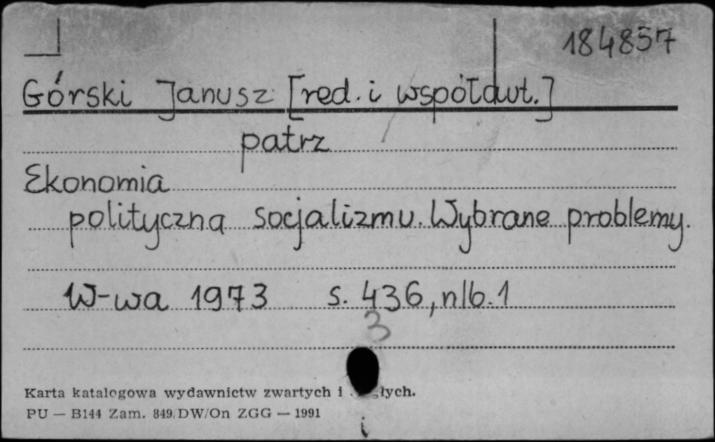 184857
Górski Janusz [red. i współaut.]
patrz
Ekonomia
polityczna socjalizmu. Wybrane problemy.
W-wa 1973 s. 436, nlb. 1
3
Karta katalogowa wydawnictw zwartych i
PU — B144 Zam. 849. DW/On ZGG — 1991